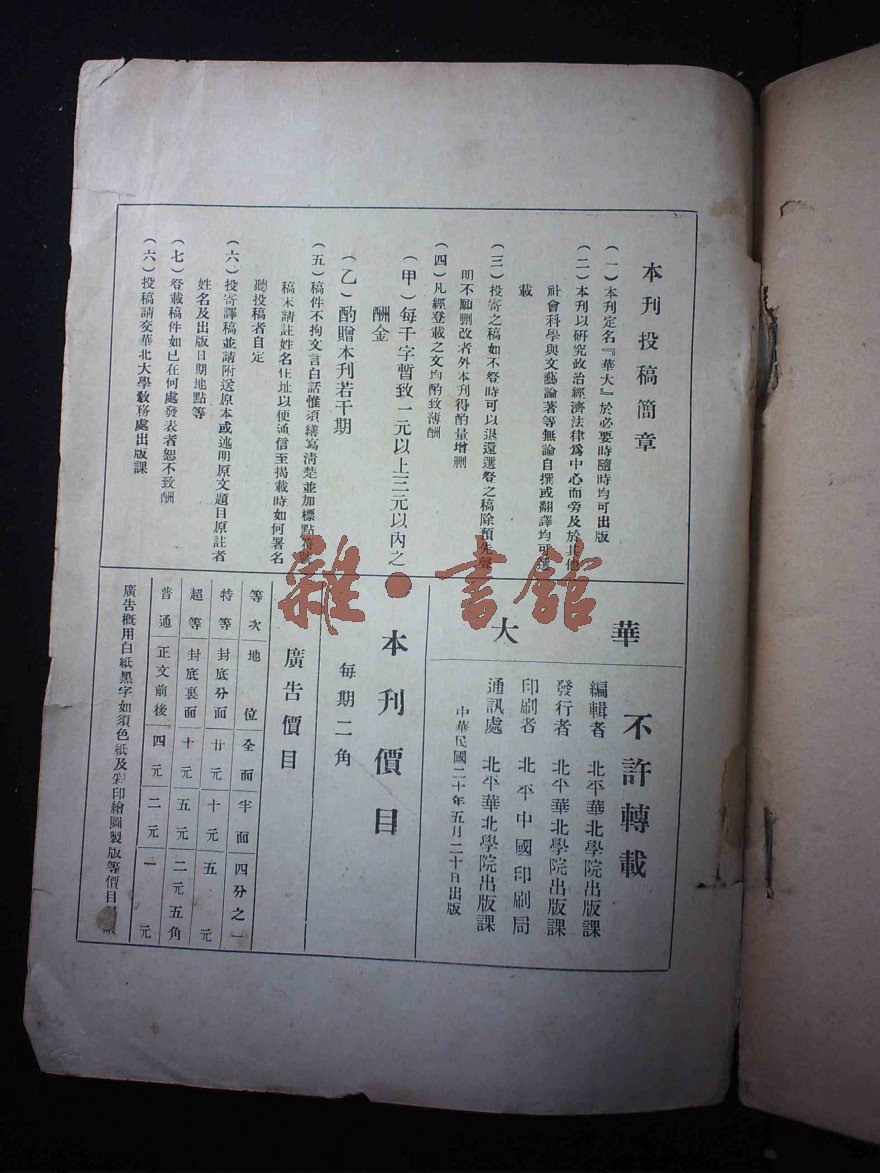 本刊投稿簡章
(一)本刊定名『華大』於必要時隨時均可出版
(二)本刊以研究政治經濟法律爲中心而旁及於其他
社會科學與文藝論著等無論自撰或翻譯均可選
載
(三)投寄之稿如不登時可以退還選登之稿除預先聲
明不願删改者外本刊得酌量增删
(四)凡經登載之文均酌致薄酬
(甲)每千字暫致一元以上三元以內之
酬金
(乙)酌贈本刊若干期
(五)稿件不拘文言白話惟須繕寫清楚並加標點符號
稿末請註姓名住址以便通信至揭載時如何署名
聽投稿者自定
(六)投寄譯稿並請附送原本或述明原文題目原註者
姓名及出版日期地點等
(七)登載稿件如已在何處發表者恕不致酬
(六)投稿請交華北大學教務處出版課
華大
不許轉載
編輯者 北平華北學院出版課
發行者 北平華北學院出版課
印刷者 北平中國印刷局
通訊處 北平華北學院出版課
中華民國二十年五月二十日出版
本刊價目
每期二角
廣告價目
等次 地位 全面 半面 四分之一
特等 封底外面 廿元 十元 五元
超等 封底裏面 十元 五元 二元五角
普通 正文前後 四元 二元 一元
廣告概用白紙黑字如須色紙及彩印繪圖製版等價目
雜·書館